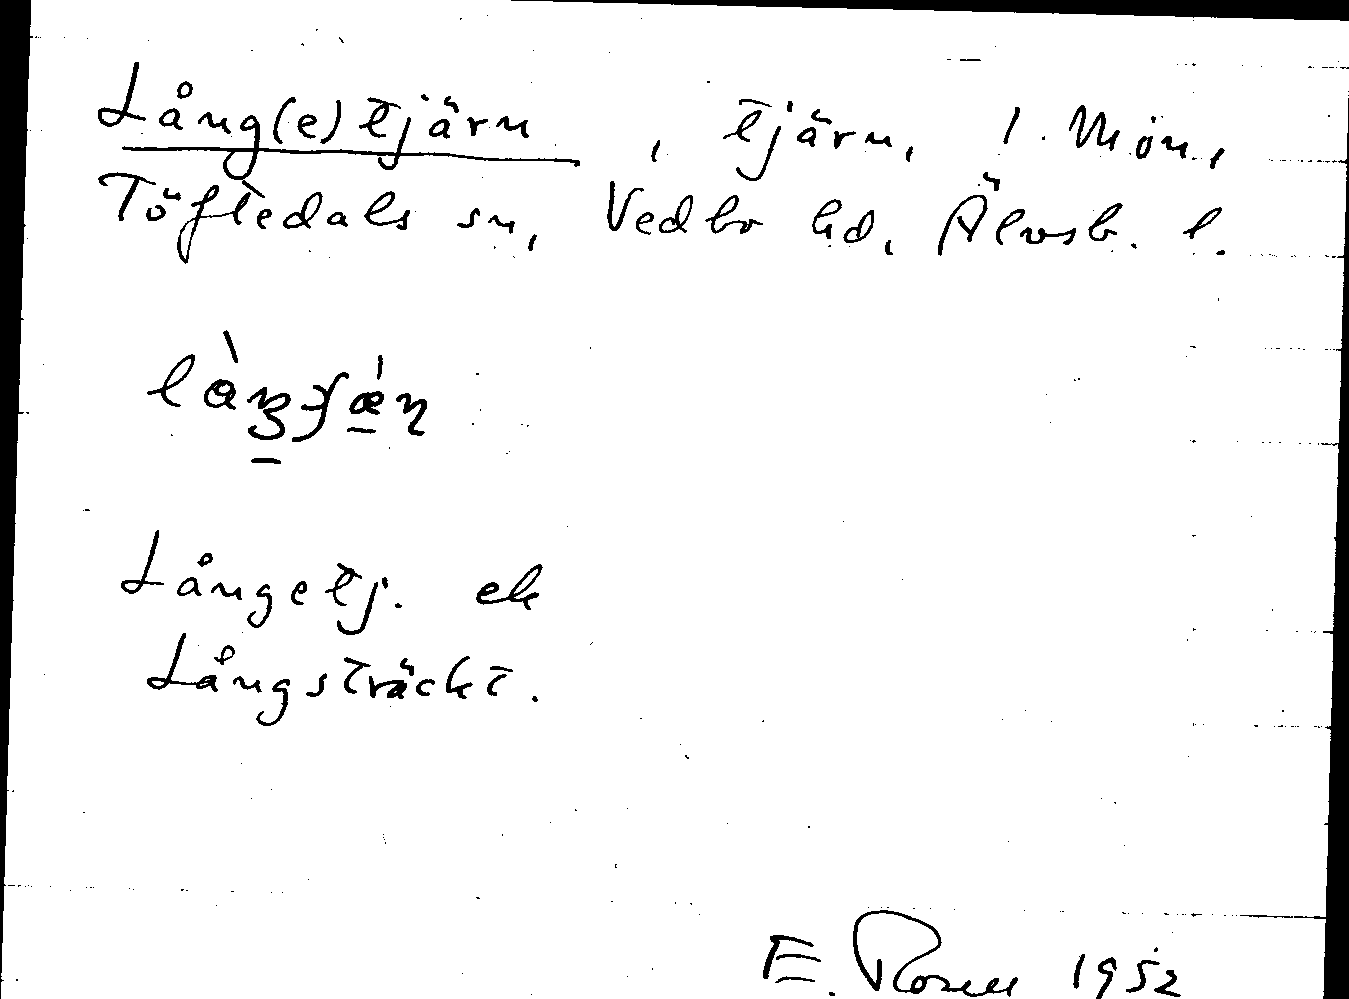 Lång(e)tjärn, tjärn, 1. Mön,
Töftedals sn, Vedbo hd, Älvsb. l.
Långetj. ek
Långsträckt.
E. Rosell 1952